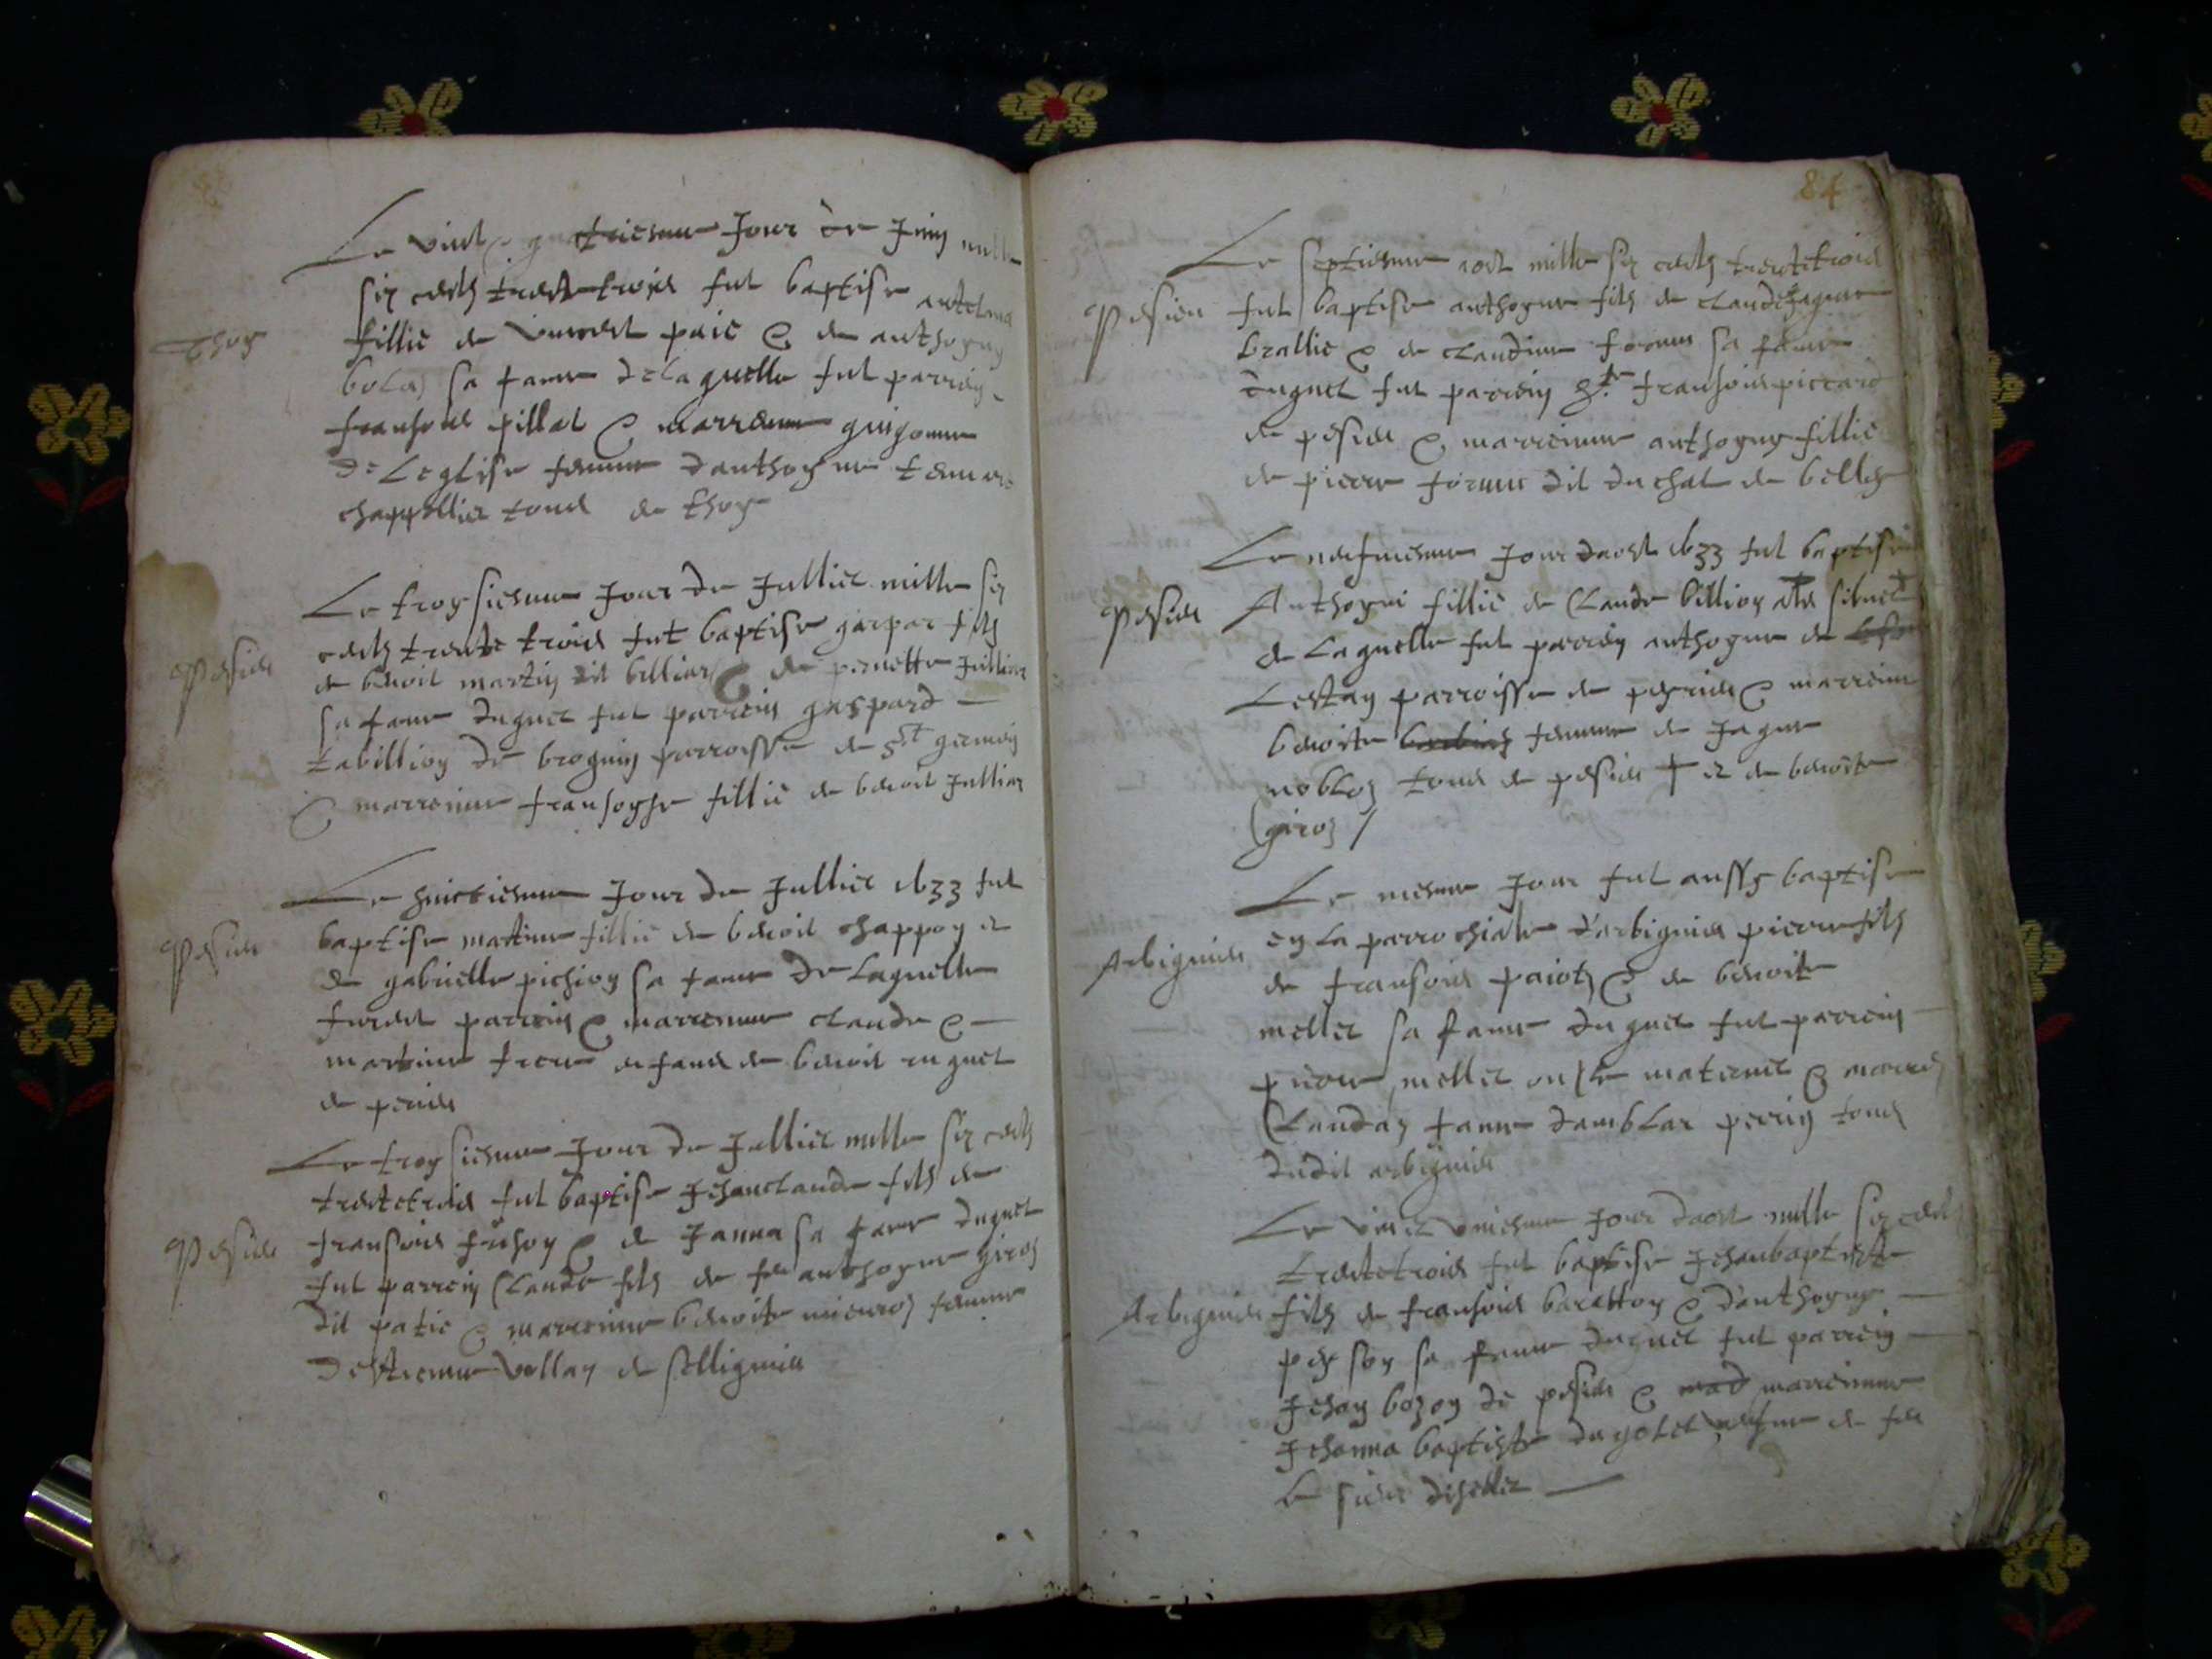 Le vint quatriesme Jour de Juing mille
six cents trente troys fut baptise
Thoy
fillie de vincent paic & de anthoyny
sa fame de laquelle fut parrein
fransois pillat & marrenne guigonne
de Leglise femme danthoyne
chappellier tous de thoy
Le troysiesme Jour de Julliet mille six
cents trente trois fut baptise gaspar fils
Pesieu
de benoit martin dit billiar & de pernette Julliar
sa fame duquel fut parrein gaspard
tabillion de brognin parroisse de St germain
& marrenne fransoyse fillie de benoit Julliar
Le huictiesme Jour de Julliet 1633 fut
baptise martine fillie de benoit chappoy et
Pesieu
de gabrielle pichion sa fame de Laquelle
furent parrein & marrenne claude &
martine frere enfans de benoit ruguet
de pesieu
Le troysiesme Jour de Julliet mille six cents
trentetrois fut baptise Jehanclaude fils de
Pesieu
fransois frison & de Janna sa fame duquel
fut parrein Claude fils de feu anthoyne giroz
dit patic & marrenne benoite femme
destienne vollaz de sellignieu
84
Le septiesme aost mille six cents trentetrois
Pesieu
fut baptise anthoyne fils de claude
brallie & de claudine sa fame
duquel fut parrein fransois piccard
de pesieu & marrenne anthoyny fillie
de pierre dit duchat de belley
Le neufviesme Jour daost 1633 fut baptise
Pesieu
Anthoyni fillie de Claude billion
de Laquelle fut parrein anthoyne de
Lestay parroisse de & marrenne
benoite femme de Jaque
tous de pesieu † et de benoite
giroz /
Le mesme Jour fut aussy baptise
Arbignieu
en la parrochiale darbignieu pierre fils
de fransois paiot & de benoite
mellet sa fame duquel fut parrein
pierre mellet onsle maternel & marren
Claudaz fame damblar perrin tous
dudit arbignieu
Le vint vniesme Jour daost mille six cents
trentetrois fut baptise Jehanbaptiste
Arbignieu
fils de fransois baretton & danthoyny
sa fame duquel fut parrein
Jehan bozon de pesieu & mad marrenne
Jehanna baptiste dugolet vefve de feu
le sieur